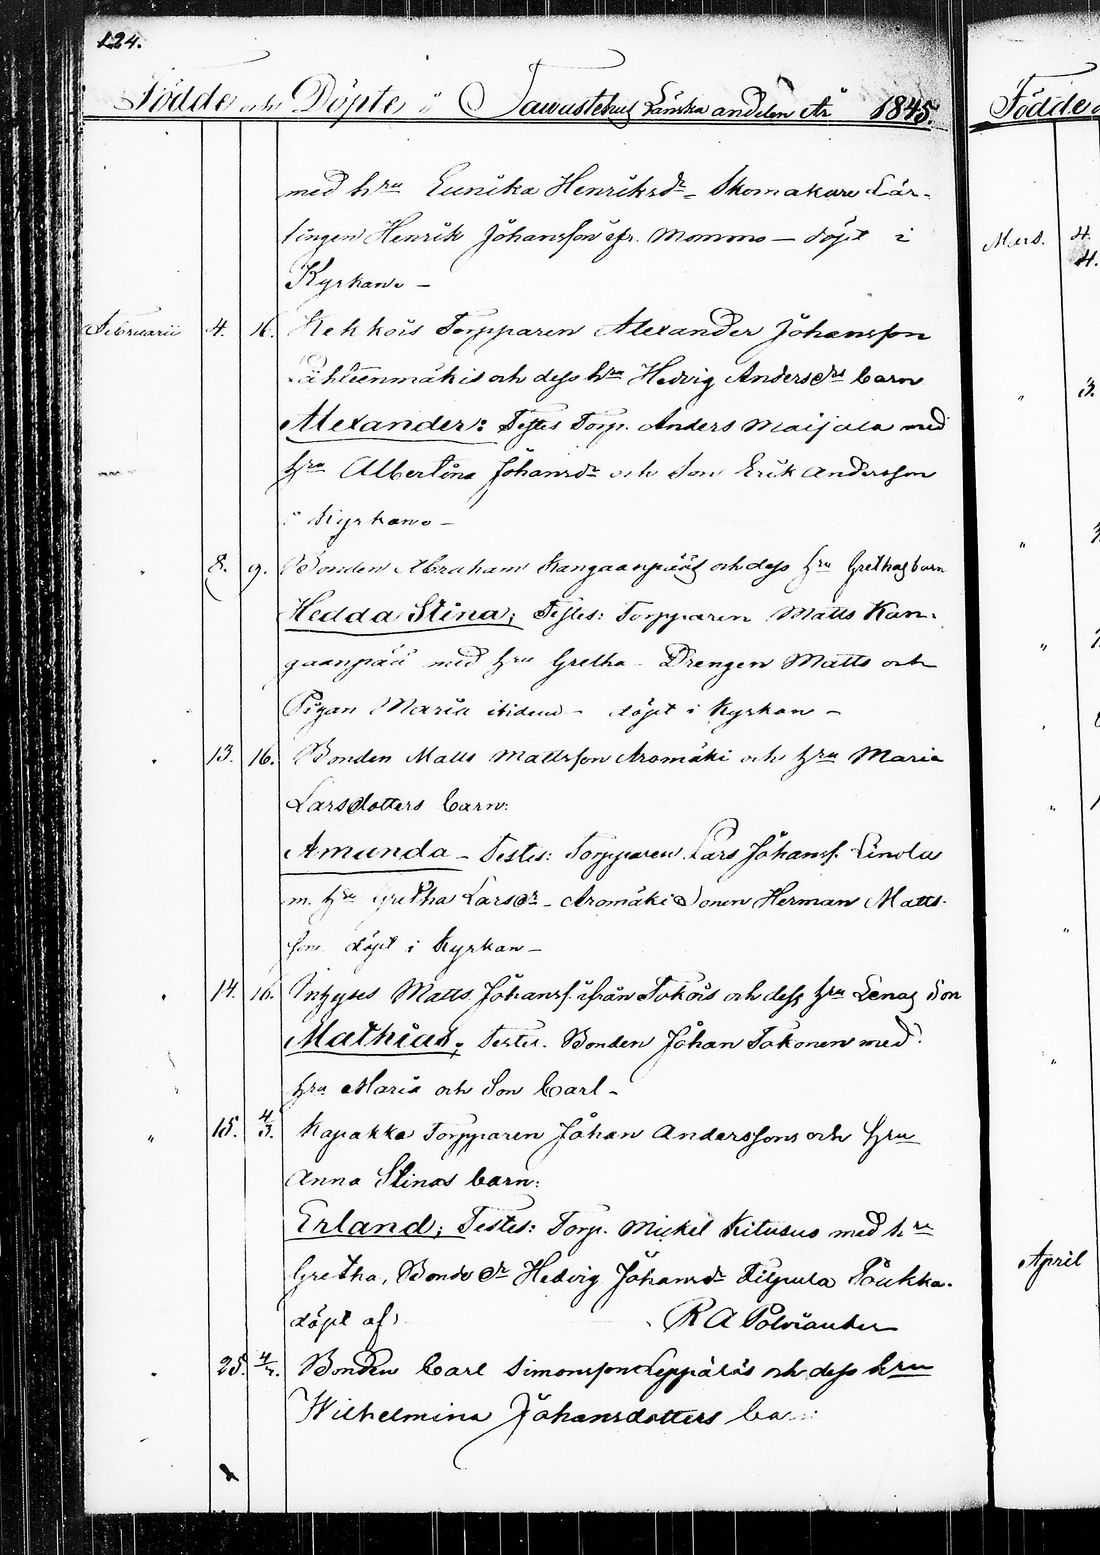 124.
Födde och Döpte i Tawastehus Länska andelen År 1845.
med hru Eunika Henriksdr Skomakare Lär-
lingen Henrik Johansson ifr. Mommo — döpt i
Kyrkan. —
Februarii 4. 16. Kekkois Torpparen Alexander Johansson
Lähteenmäkis och dess hru Hedvig Andersdrs barn
Alexander: Testes Torp. Anders Maijala med
hru Albertina Johansdr och Son Erik Andersson
i Kyrkan. —
8. 9. Bonden Abraham Kangaanpääs och dess hru Grethas barn
Hedda Stina; Testes: Torpparen Matts Kan-
gaanpää med hru Gretha - Drengen Matts och
Pigan Maria ibidem - döpt i Kyrkan —
13. 16. Bonden Matts Mattsson Aromäki och hru Maria
Larsdotters barn:
Amunda - Testes: Torpparen Lars Johanss. Linola
m. hru Gretha Larsdr - Aromäki Sonen Herman Matts-
son döpt i Kyrkan —
14. 16. Inhyses Matts Johanss. ifrån Tokois och dess hru Lenas Son
Mathias; Testes. Bonden Johan Tokonen med
hru Maria och Son Carl -
" 15. 4/3. Kapakka Torpparen Johan Anderssons och hru
Anna Stinas barn:
Erland; Testes: Torp. Mickel Kitusuo med hru
Gretha, Bonde dr Hedvig Johansdr Tilpula Poukka.
döpt af R A Polviander
25. Bonden Carl Simonsson Leppäläs och dess hru
Wilhelmina Johansdotters ba
Födde
Mars. 4.
4.
" 3.
"
"
"
"
April